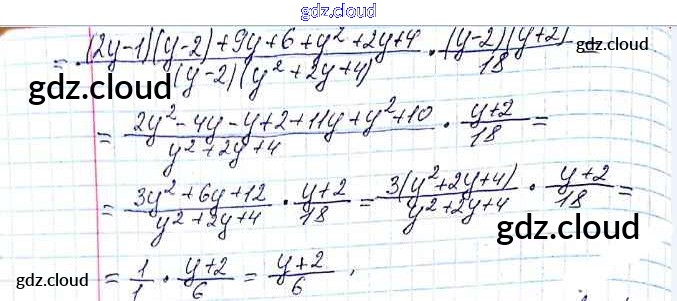 gdz.cloud
= ((2y-1)(y-2)+9y+6+y²+2y+4)/((y-2)(y²+2y+4)) · ((y-2)(y+2))/18 =
gdz.cloud
gdz.cloud
= (2y²-4y-y+2+11y+y²+10)/(y²+2y+4) · (y+2)/18 =
= (3y²+6y+12)/(y²+2y+4) · (y+2)/18 = (3(y²+2y+4))/(y²+2y+4) · (y+2)/18 =
gdz.cloud
gdz.cloud
= 1/1 · (y+2)/6 = (y+2)/6 .
gdz.cloud
gdz.cloud